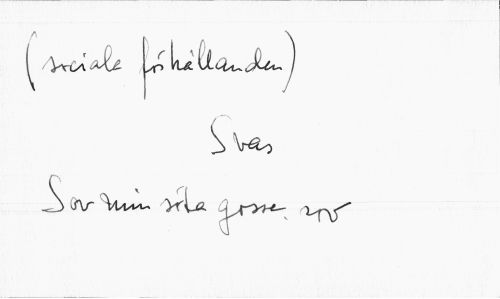 (sociala förhållanden)
Svas
Sov min söta gosse, sov